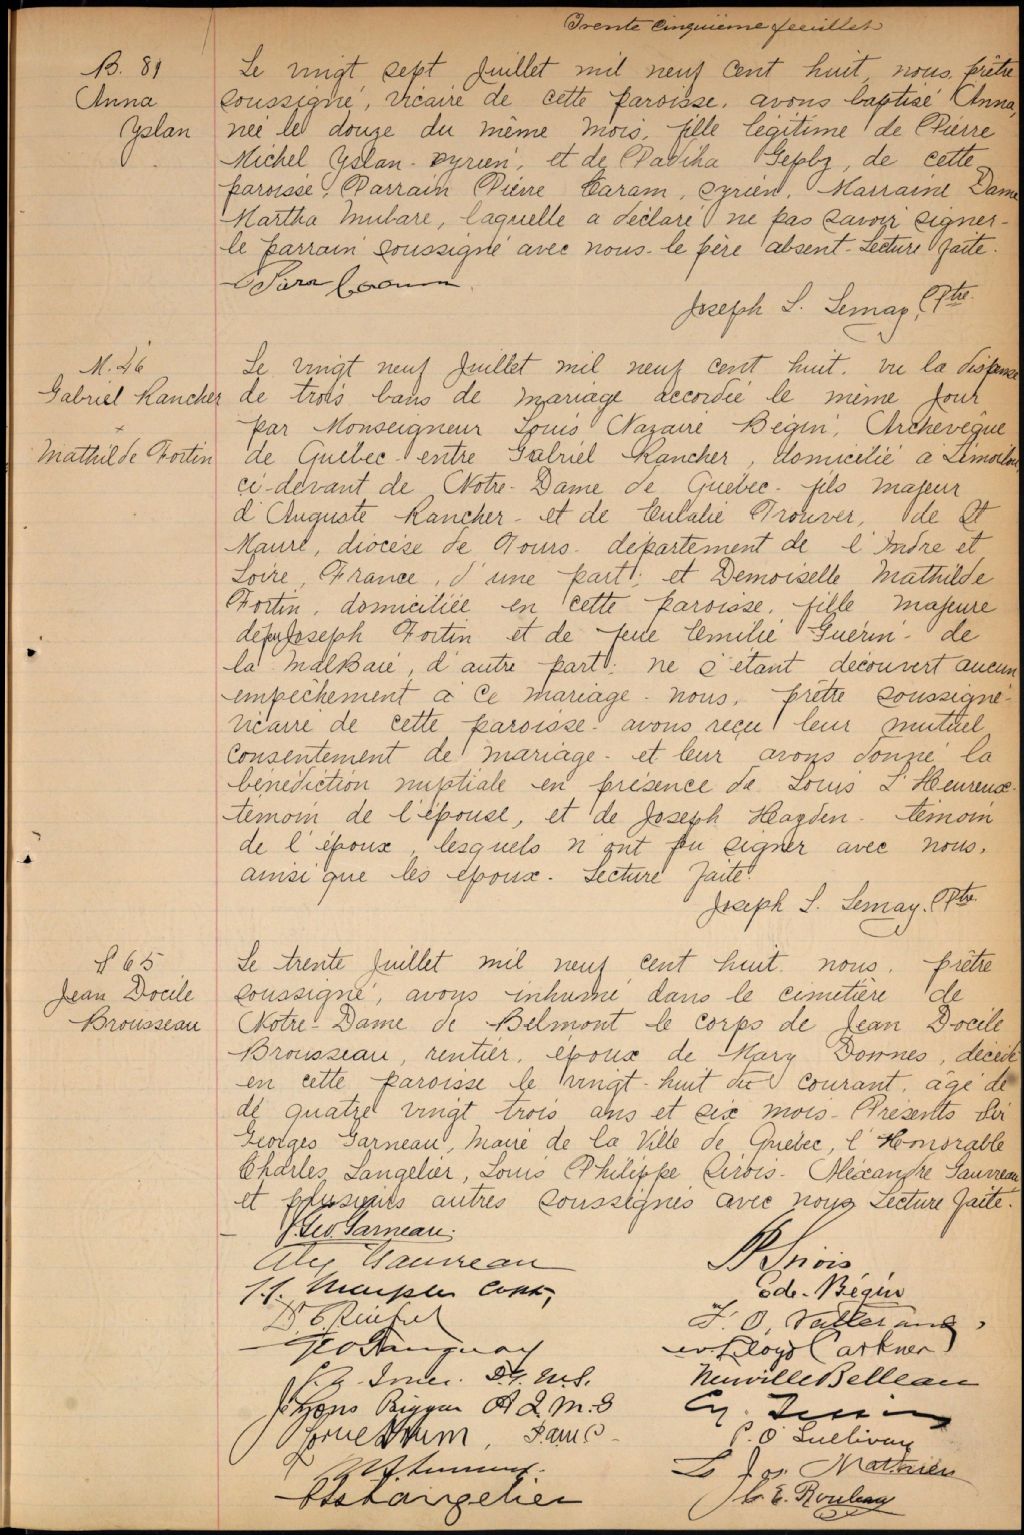 Trente cinquième feuillet
B. 89
Anna
Yslan
Le vingt sept Juillet mil neuf cent huit, nous, prêtre
soussigné, vicaire de cette paroisse, avons baptisé Anna,
née le douze du même mois, fille légitime de Pierre
Michel Yslan - syrien, et de, de cette
paroisse. Parrain Pierre Caram, syrien, Marraine Dame
Martha Mubare, laquelle a déclaré ne pas savoir signer -
le parrain soussigné avec nous - le père absent - Lecture faite.
Joseph L. Lemay, Ptre
M. 46
Gabriel Rancher
+
Mathilde Fortin
Le vingt neuf Juillet mil neuf cent huit, vu la dispense
de trois bans de mariage accordée le même Jour
par Monseigneur Louis Nazaire Bégin, Archevêque
de Québec - entre Gabriel Rancher, domicilié à Limoilou
ci-devant de Notre-Dame de Québec - fils majeur
d'Auguste Rancher - et de Eulalie Trouver, de St
Maure, diocèse de Tours - département de l'Indre et
Loire, France, d'une part; et Demoiselle Mathilde
Fortin, domiciliée en cette paroisse, fille majeure
de feu Joseph Fortin et de feue Emilie Guérin - de
la MalBaie, d'autre part; ne s'étant découvert aucun
empêchement à ce mariage - nous, prêtre soussigné -
vicaire de cette paroisse - avons reçu leur mutuel
consentement de mariage - et leur avons donné la
bénédiction nuptiale en présence de Louis L'Heureux -
témoin de l'épouse, et de Joseph Hayden - témoin
de l'époux, lesquels n'ont pu signer avec nous,
ainsi que les époux. Lecture faite.
Joseph L. Lemay, Ptre
S 65
Jean Docile
Brousseau
Le trente Juillet mil neuf cent huit, nous, prêtre
soussigné, avons inhumé dans le cimetière de
Notre-Dame de Belmont le corps de Jean Docile
Brousseau, rentier, époux de Mary Downes, décédé
en cette paroisse le vingt-huit du courant, âgé de
de quatre vingt trois ans et six mois - Présents Sir
Georges Garneau, Maire de la Ville de Québec, l'Honorable
Charles Langelier, Louis Philippe Sirois - Alexandre Gauvreau
et plusieurs autres soussignés avec nous Lecture faite.
J. Geo. Garneau.
Alex Gauvreau
LP Sirois
Ed. Bégin
Geo Tanguay
Floyd Carkner
Neuville Belleau
P. O'Sullivan
Jos. Mathieu
Chs Langelier
J. E. Rouleau